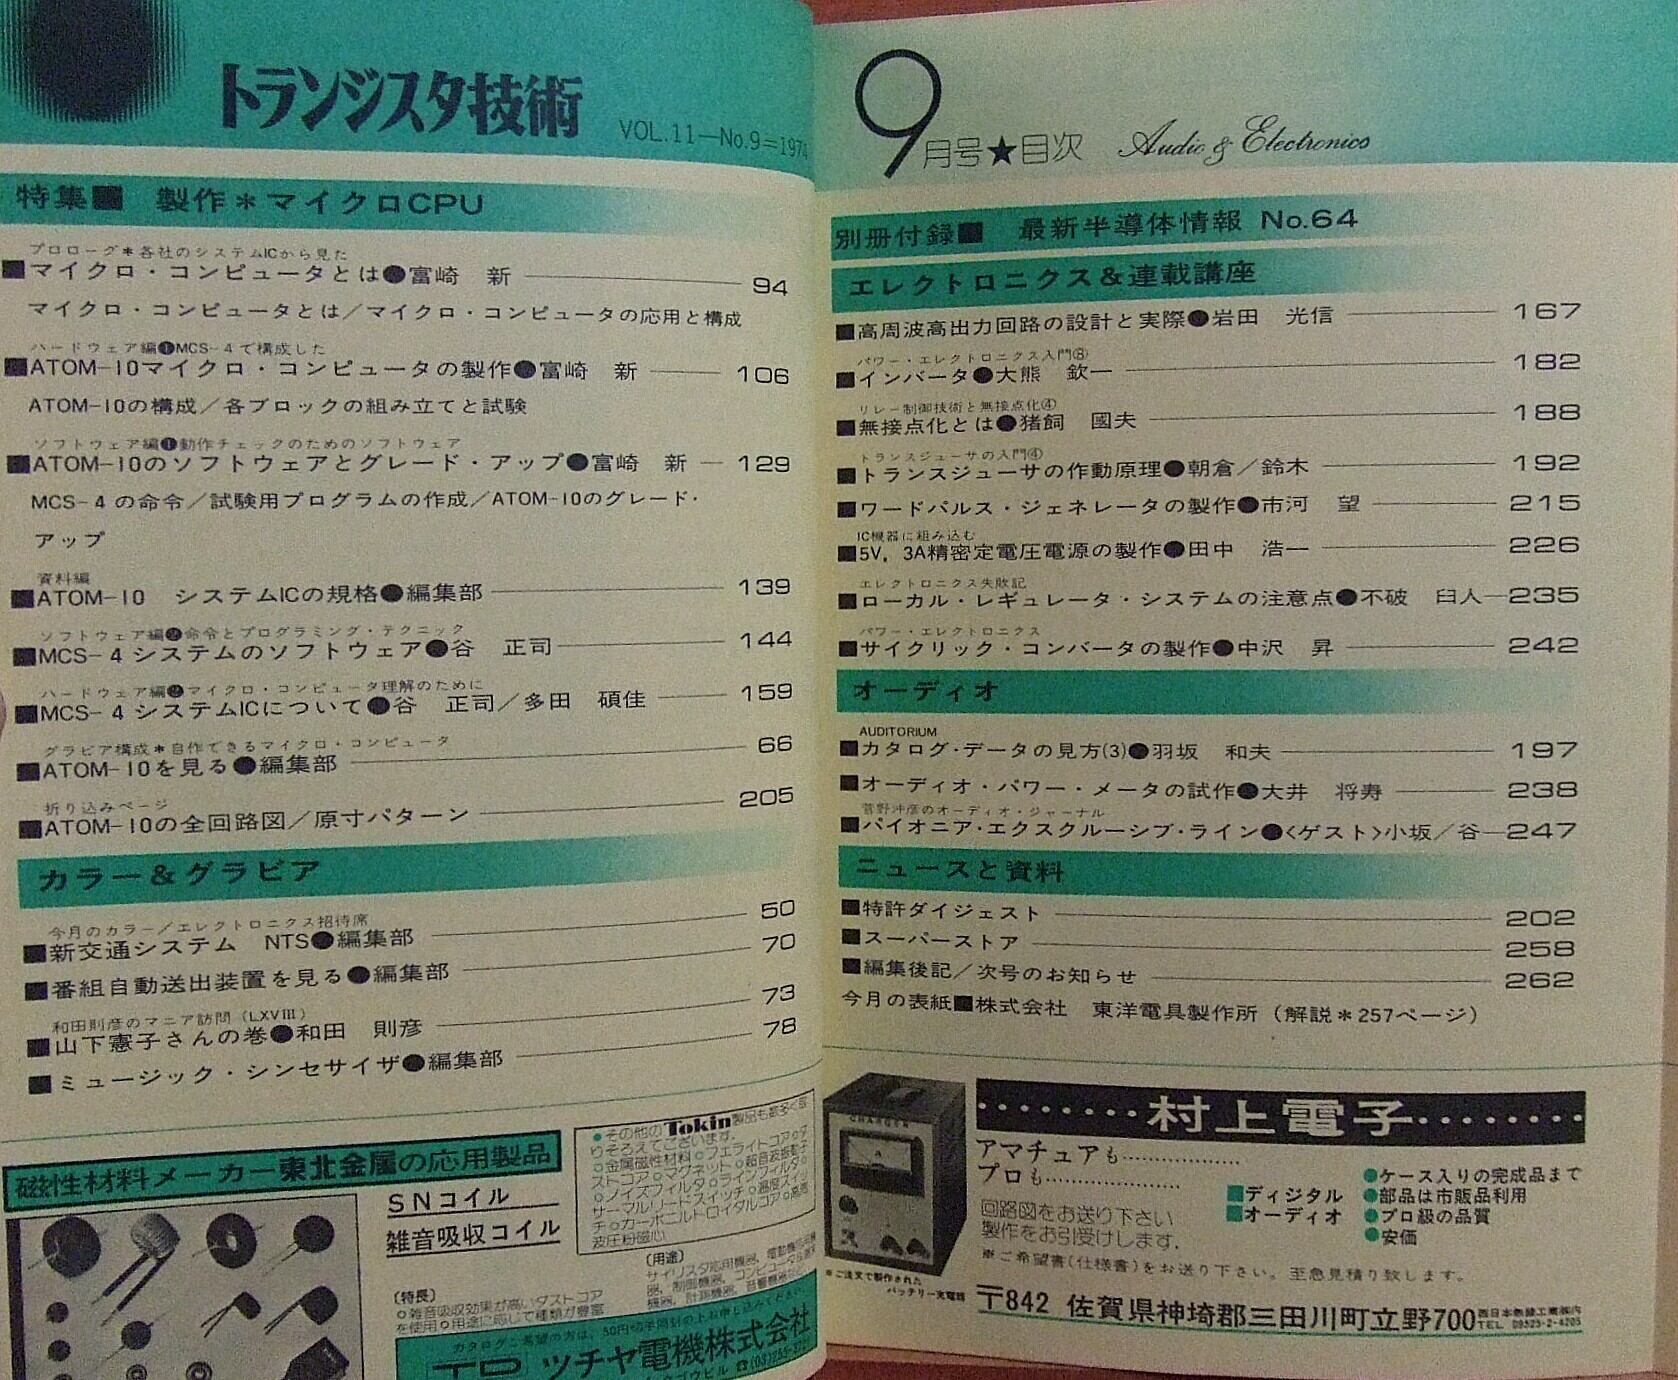 トランジスタ技術
VOL.11—No.9=1974
特集■ 製作＊マイクロCPU
プロローグ＊各社のシステムICから見た
■マイクロ・コンピュータとは●富崎 新 94
マイクロ・コンピュータとは／マイクロ・コンピュータの応用と構成
ハードウェア編❶MCS-4で構成した
■ATOM-10マイクロ・コンピュータの製作●富崎 新 106
ATOM-10の構成／各ブロックの組み立てと試験
ソフトウェア編❶動作チェックのためのソフトウェア
■ATOM-10のソフトウェアとグレード・アップ●富崎 新 129
MCS-4の命令／試験用プログラムの作成／ATOM-10のグレード・
アップ
資料編
■ATOM-10 システムICの規格●編集部 139
ソフトウェア編❷命令とプログラミング・テクニック
■MCS-4システムのソフトウェア●谷 正司 144
ハードウェア編❷マイクロ・コンピュータ理解のために
■MCS-4システムICについて●谷 正司／多田 碩佳 159
グラビア構成＊自作できるマイクロ・コンピュータ
■ATOM-10を見る●編集部 66
折り込みページ
■ATOM-10の全回路図／原寸パターン 205
カラー＆グラビア
今月のカラー／エレクトロニクス招待席
■新交通システム NTS●編集部 50
■番組自動送出装置を見る●編集部 70
和田則彦のマニア訪問（LXVIII）
■山下憲子さんの巻●和田 則彦 73
■ミュージック・シンセサイザ●編集部 78
磁性材料メーカー東北金属の応用製品
SNコイル
雑音吸収コイル
●その他のTokin製品も数多く取
りそろえてございます.
○金属磁性材料○フェライトコア○ダ
ストコア○マグネット○超音波振動子
○ノイズフィルタ○ラインフィルタ○
サーマルリードスイッチ○温度スイッ
チ○カーボニルトロイダルコア○高周
波圧粉磁心
（特長）
○雑音吸収効果が高いダストコア
を使用○用途に応じて種類が豊富
（用途）
サイリスタ応用機器, 電動機応用機
器, 制御機器, コンピュータ
機器, 計測機器, 音響機器
カタログご希望の方は、50円切手同封の上お申し込みください。
ツチヤ電機株式会社
9月号★目次 Audio & Electronics
別冊付録■ 最新半導体情報 No.64
エレクトロニクス＆連載講座
■高周波高出力回路の設計と実際●岩田 光信 167
パワー・エレクトロニクス入門⑧
■インバータ●大熊 欽一 182
リレー制御技術と無接点化④
■無接点化とは●猪飼 國夫 188
トランスジューサの入門④
■トランスジューサの作動原理●朝倉／鈴木 192
■ワードパルス・ジェネレータの製作●市河 望 215
IC機器に組み込む
■5V，3A精密定電圧電源の製作●田中 浩一 226
エレクトロニクス失敗記
■ローカル・レギュレータ・システムの注意点●不破 臼人 235
パワー・エレクトロニクス
■サイクリック・コンバータの製作●中沢 昇 242
オーディオ
AUDITORIUM
■カタログ・データの見方(3)●羽坂 和夫 197
■オーディオ・パワー・メータの試作●大井 将寿 238
菅野沖彦のオーディオ・ジャーナル
■パイオニア・エクスクルーシブ・ライン●〈ゲスト〉小坂／谷 247
ニュースと資料
■特許ダイジェスト 202
■スーパーストア 258
■編集後記／次号のお知らせ 262
今月の表紙■株式会社 東洋電具製作所（解説＊257ページ）
CHARGER
村上電子
アマチュアも
プロも
回路図をお送り下さい
製作をお引受けします.
■ディジタル
■オーディオ
●ケース入りの完成品まで
●部品は市販品利用
●プロ級の品質
●安価
※ご希望書(仕様書)をお送り下さい。至急見積り致します。
※ご注文で製作された
バッテリー充電器
〒842 佐賀県神埼郡三田川町立野700 西日本無線工業㈱内
TEL 09525-2-4205